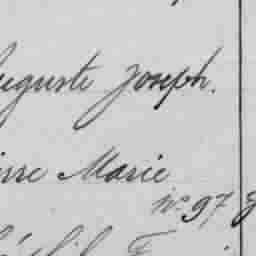 uguste Joseph.
ierre Marie
N° 97